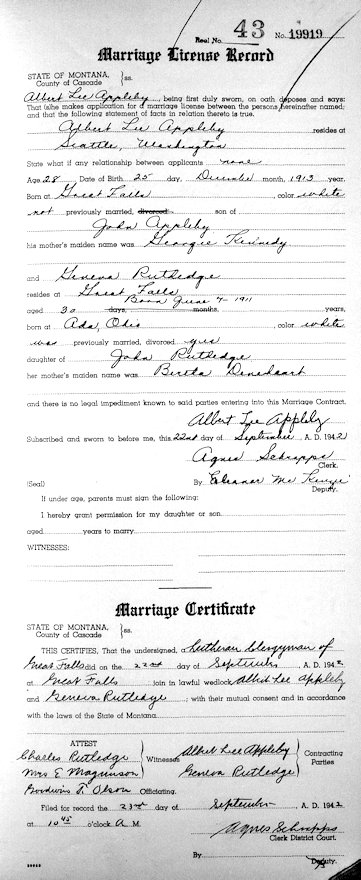 Reel No. 43 No. 19919
Marriage License Record
STATE OF MONTANA,
County of Cascade } ss.
Albert Lee Appleby, being first duly sworn, on oath deposes and says:
That (s)he makes application for a marriage license between the persons hereinafter named;
and that the following statement of facts in relation thereto is true.
Albert Lee Appleby resides at
Seattle, Washington
State what if any relationship between applicants none
Age 28 Date of Birth 25 day, December month, 1913 year.
Born at Great Falls, color white
not previously married, divorced son of
John Appleby
his mother's maiden name was Georgie Kennedy
and Geneva Rutledge
resides at Great Falls
Born June 4 - 1911
aged 30 days, months, years,
born at Ada, Ohio, color white
was previously married, divorced yes
daughter of John Rutledge
her mother's maiden name was Bertha
and there is no legal impediment known to said parties entering into this Marriage Contract.
Albert Lee Appleby
Subscribed and sworn to before me, this 22nd day of September, A. D. 1942
Agnes Schrapps
Clerk.
(Seal) By Eleanor Mc Kenzie
Deputy.
If under age, parents must sign the following:
I hereby grant permission for my daughter or son
aged years to marry
WITNESSES:
Marriage Certificate
STATE OF MONTANA,
County of Cascade } ss.
THIS CERTIFIES, That the undersigned, Lutheran Clergyman of
Great Falls did on the 22nd day of September, A. D. 1942
at Great Falls join in lawful wedlock Albert Lee Appleby
and Geneva Rutledge; with their mutual consent and in accordance
with the laws of the State of Montana
ATTEST
Charles Rutledge } Witnesses Albert Lee Appleby } Contracting
Mrs E Magnuson Geneva Rutledge Parties
Goodwin T. Olson Officiating.
Filed for record the 23rd day of September A. D. 1942
at 10 45 o'clock A M.
Agnes Schrapps
Clerk District Court.
By Deputy.